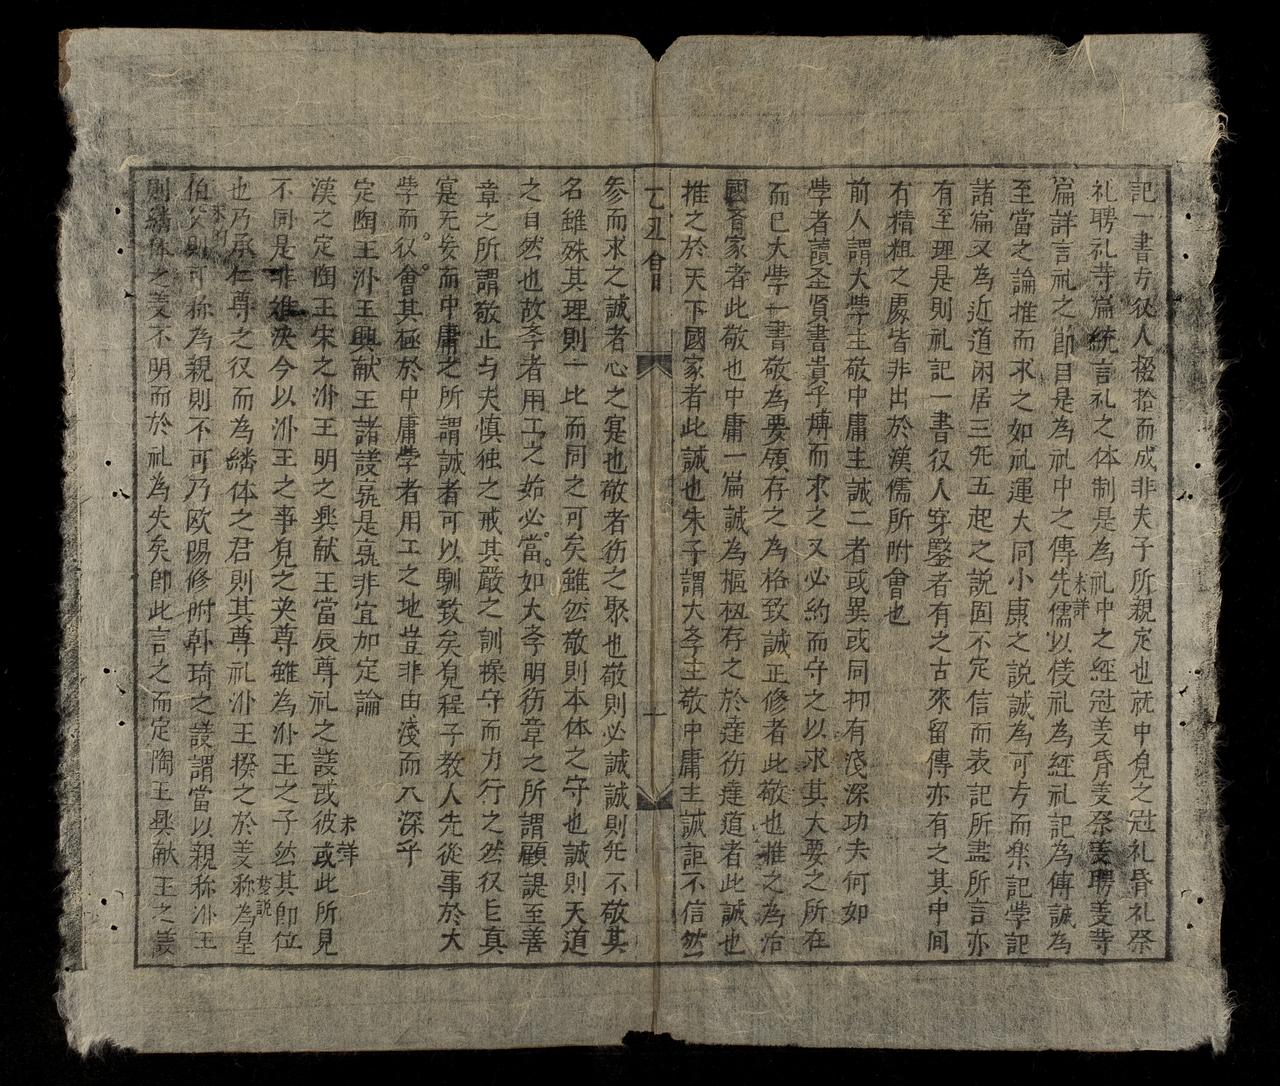 記一書方仅人掇拾而成非夫子所親定也就中皃之冠礼昏礼祭
礼聘礼䓁篇統言礼之体制是為礼中之經冠𦍌昏𦍌祭𦍌聘𦍌䓁
篇詳言礼之節目是為礼中之傳先儒以𠊓礼為經礼記為傳誠為
未詳
至當之論推而求之如礼運大同小康之説誠為可方而樂記學記
諸篇又為近道闲居三旡五起之説固不定信而表記所盡所言亦
有至理是則礼記一書仅人穿鑿者有之古來留傳亦有之其中间
有精粗之處皆非出於漢儒所附會也
前人謂大斈主敬中庸主誠二者或異或同抑有淺深功夫何如
斈者讀圣賢書貴乎博而求之又必約而守之以求其大要之所在
而已大斈一書敬為要領存之為格致誠正修者此敬也推之為治
國斉家者此敬也中庸一篇誠為樞極存之於達徳達道者此誠也
推之於天下國家者此誠也朱子謂大斈主敬中庸主誠詎不信然
乙丑會
十
參而求之誠者心之寔也敬者徳之聚也敬則必誠誠則旡不敬其
名雖殊其理則一比而同之可矣雖然敬則本体之守也誠則天道
之自然也故斈者用工之始必當如大斈明徳章之所謂顧諟至善
章之所謂敬止与夫慎独之戒其嚴之訓操守而力行之然仅臣真
寔旡妄而中庸之所謂誠者可以馴致矣皃程子教人先從事於大
斈而仅會其極於中庸斈者用工之地豈非由淺而入深乎
定陶王汴王興献王諸議孰是孰非宜加定論
漢之定陶王宋之汴王明之興献王當辰尊礼之議或彼或此所見
未詳
不同是非難决今以汴王之事皃之英尊雖為汴王之子然其即位
也乃承仁尊之仅而為纉体之君則其尊礼汴王揆之於𦍌称為皇
楚説
伯父則可称為親則不可乃欧陽修附韩琦之議謂當以親称汴王
則纉体之𦍌不明而於礼為失矣即此言之而定陶王興献王之議